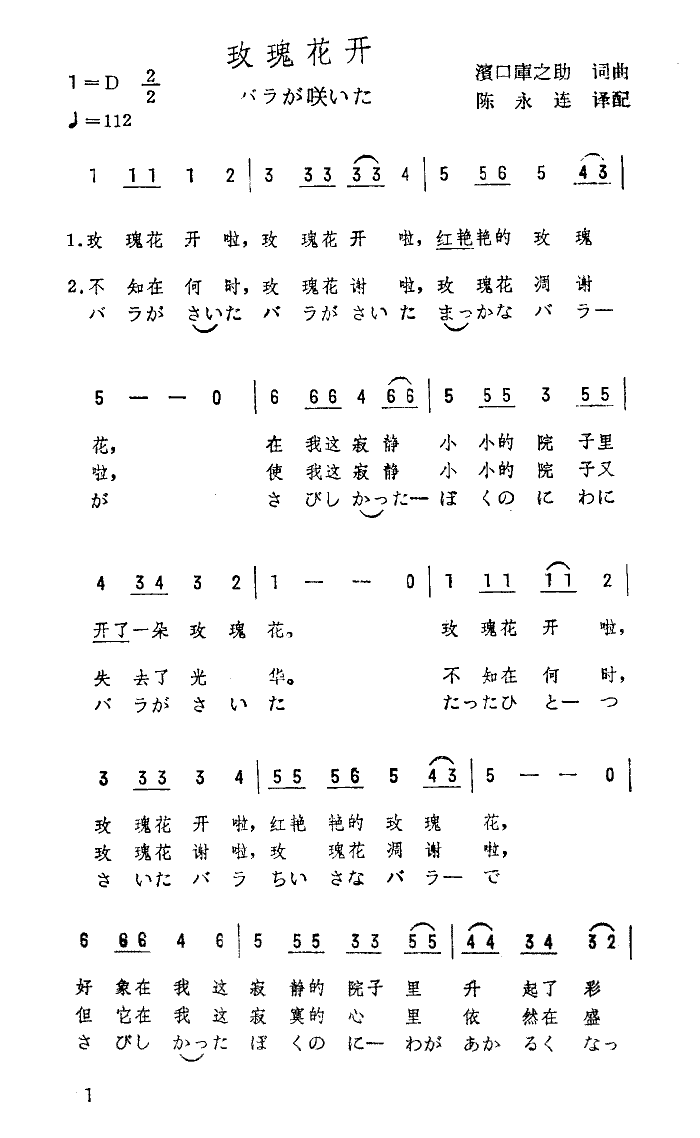 玫瑰花开
1=D 2/2
バラが咲いた
濱口庫之助 词曲
陈永连 译配
♩=112
1 1 1 1 2 | 3 3 3 3 3 4 | 5 5 6 5 4 3 |
1.玫 瑰花 开 啦,玫 瑰花 开 啦,红艳艳的 玫 瑰
2.不 知在 何 时,玫 瑰花 谢 啦,玫 瑰花 凋 谢
バ ラが さいた バ ラが さいた まっかな バ ラー
5 — — 0 | 6 6 6 4 6 6 | 5 5 5 3 5 5 |
花, 在 我这 寂 静 小 小的 院 子里
啦, 使 我这 寂 静 小 小的 院 子又
が さ びし かった一 ぼ くの に わに
4 3 4 3 2 | 1 — — 0 | 1 1 1 1 1 2 |
开了一朵 玫 瑰 花。 玫 瑰花 开 啦,
失 去了 光 华。 不 知在 何 时,
バ ラが さ い た たったひ と一 つ
3 3 3 3 4 | 5 5 5 6 5 4 3 | 5 — — 0 |
玫 瑰花 开 啦,红艳 艳的 玫 瑰 花,
玫 瑰花 谢 啦,玫 瑰花 凋 谢 啦,
さ いた バ ラ ちい さな バ ラ一 で
6 6 6 4 6 | 5 5 5 3 3 5 5 | 4 4 3 4 3 2 |
好 象在 我 这 寂 静的 院子 里 升 起了 彩
但 它在 我 这 寂 寞的 心 里 依 然在 盛
さ びし かった ぼ くの に一 わが あか るく なっ
1